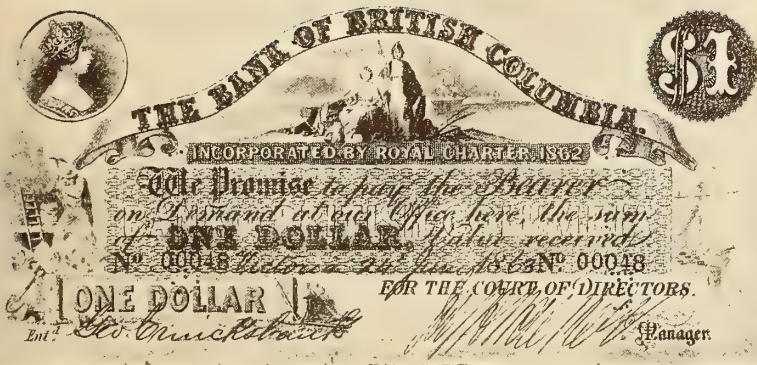 THE BANK OF BRITISH COLUMBIA.
$1
INCORPORATED BY ROYAL CHARTER 1862
We Promise to pay the Bearer
on Demand at our Office here, the sum
of ONE DOLLAR, Value received
Nº 00048 Victoria 1863 Nº 00048
FOR THE COURT OF DIRECTORS.
ONE DOLLAR
Entd Geo Cruickshank Manager.